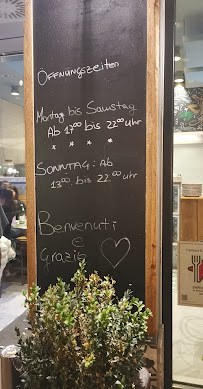 Öffnungszeiten
Montag bis Samstag
Ab 17⁰⁰ bis 22⁰⁰ uhr
* * * *
SONNTAG: Ab
13⁰⁰ bis 22⁰⁰ uhr
Benvenuti
e
Grazie ♡